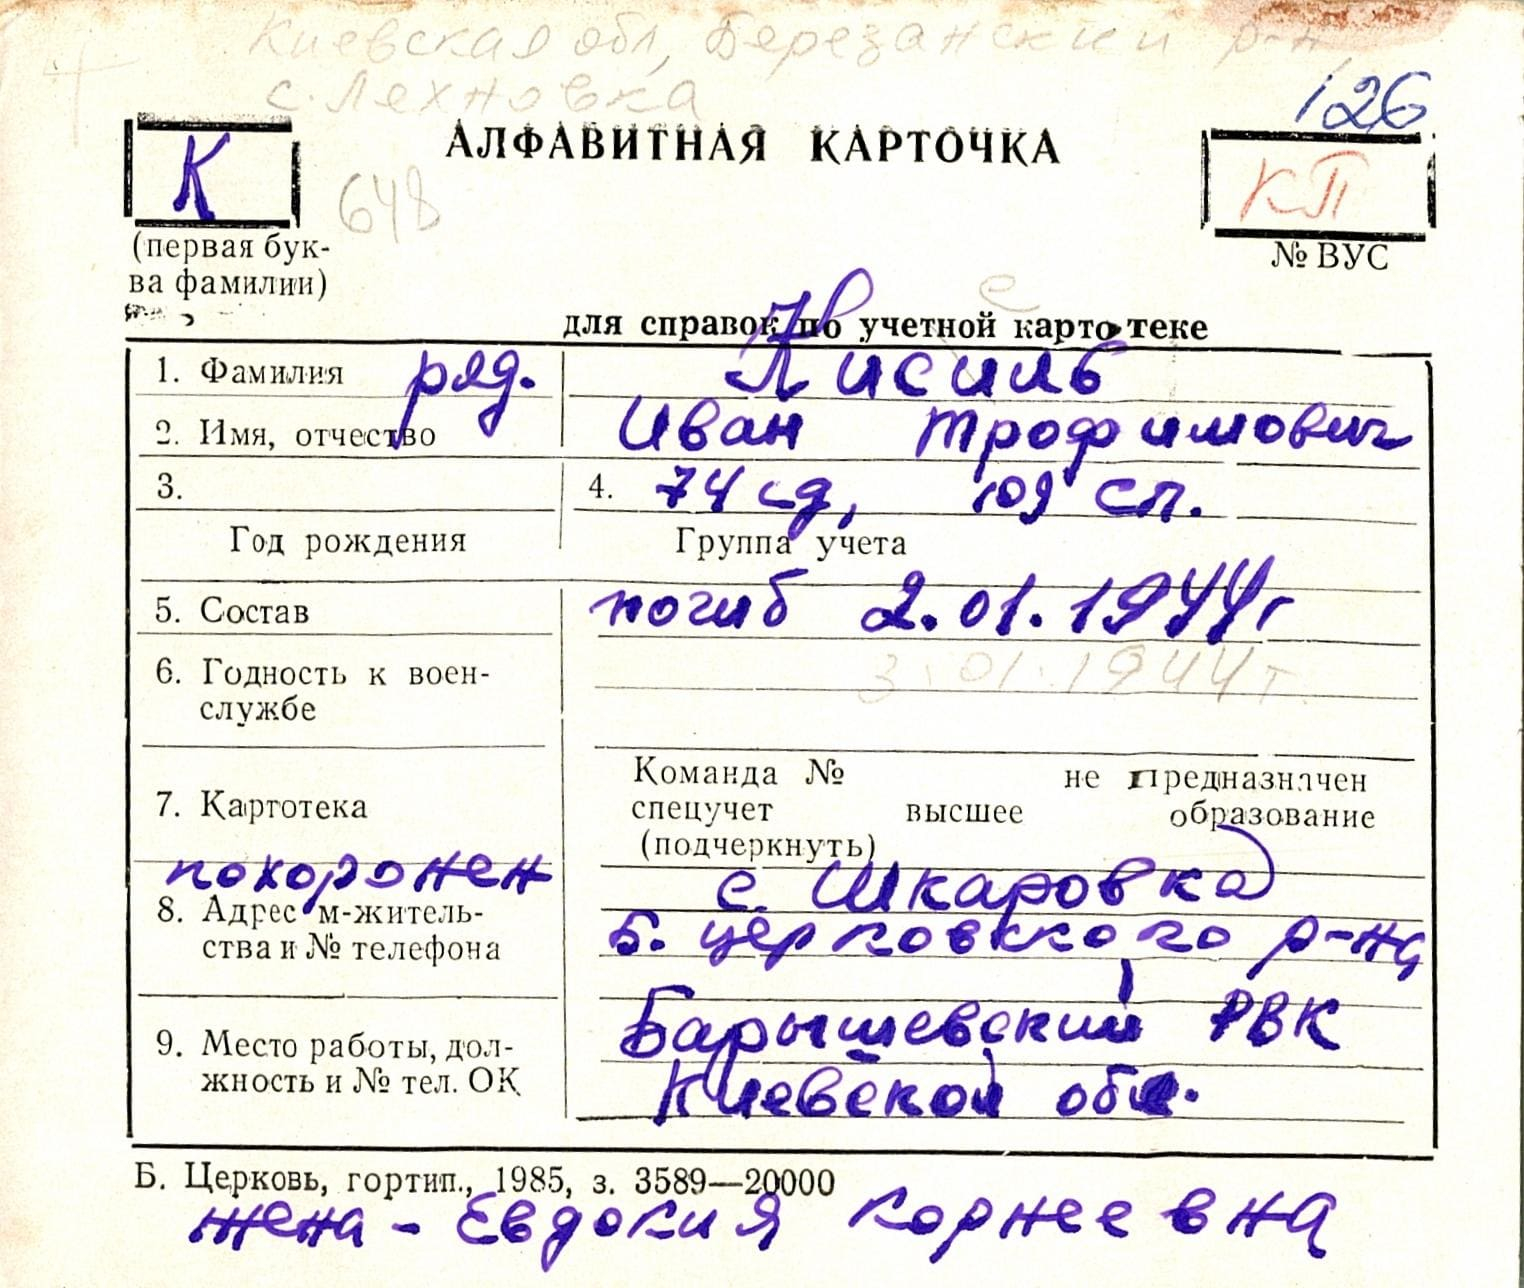 Киевская обл, Березанский р-н,
с. Лехновка
126
АЛФАВИТНАЯ КАРТОЧКА
К
648
КП
(первая бук-
ва фамилии)
№ ВУС
е
для справок по учетной картотеке
1. Фамилия ряд. Кисиль
2. Имя, отчество Иван Трофимович
3. 4. 74 сд, 109 сп.
Год рождения Группа учета
5. Состав погиб 2.01.1944г
3.01.1944г.
6. Годность к воен-
службе
Команда № не предназначен
7. Картотека спецучет высшее образование
(подчеркнуть)
похоронен с. Шкаровка
8. Адрес м-житель-
ства и № телефона Б. церковского р-на
Барышевский РВК
9. Место работы, дол-
жность и № тел. ОК Киевской обл.
Б. Церковь, гортип., 1985, з. 3589—20000
жена - Евдокия Корнеевна